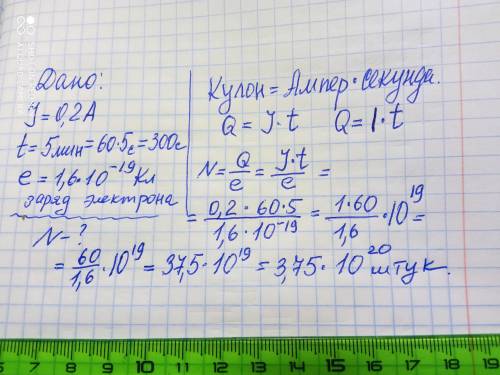 Дано:
J=0,2A
t=5мин=60·5с=300с
e=1,6·10⁻¹⁹Кл
заряд электрона
N-?
Кулон=Ампер·секунда.
Q=J·t Q=I·t
N=Q/e=J·t/e=
=0,2·60·5/1,6·10⁻¹⁹=1·60/1,6·10¹⁹=
=60/1,6·10¹⁹=37,5·10¹⁹=3,75·10²⁰штук.
6 7 8 9 10 11 12 13 14 15 16 17 18 19